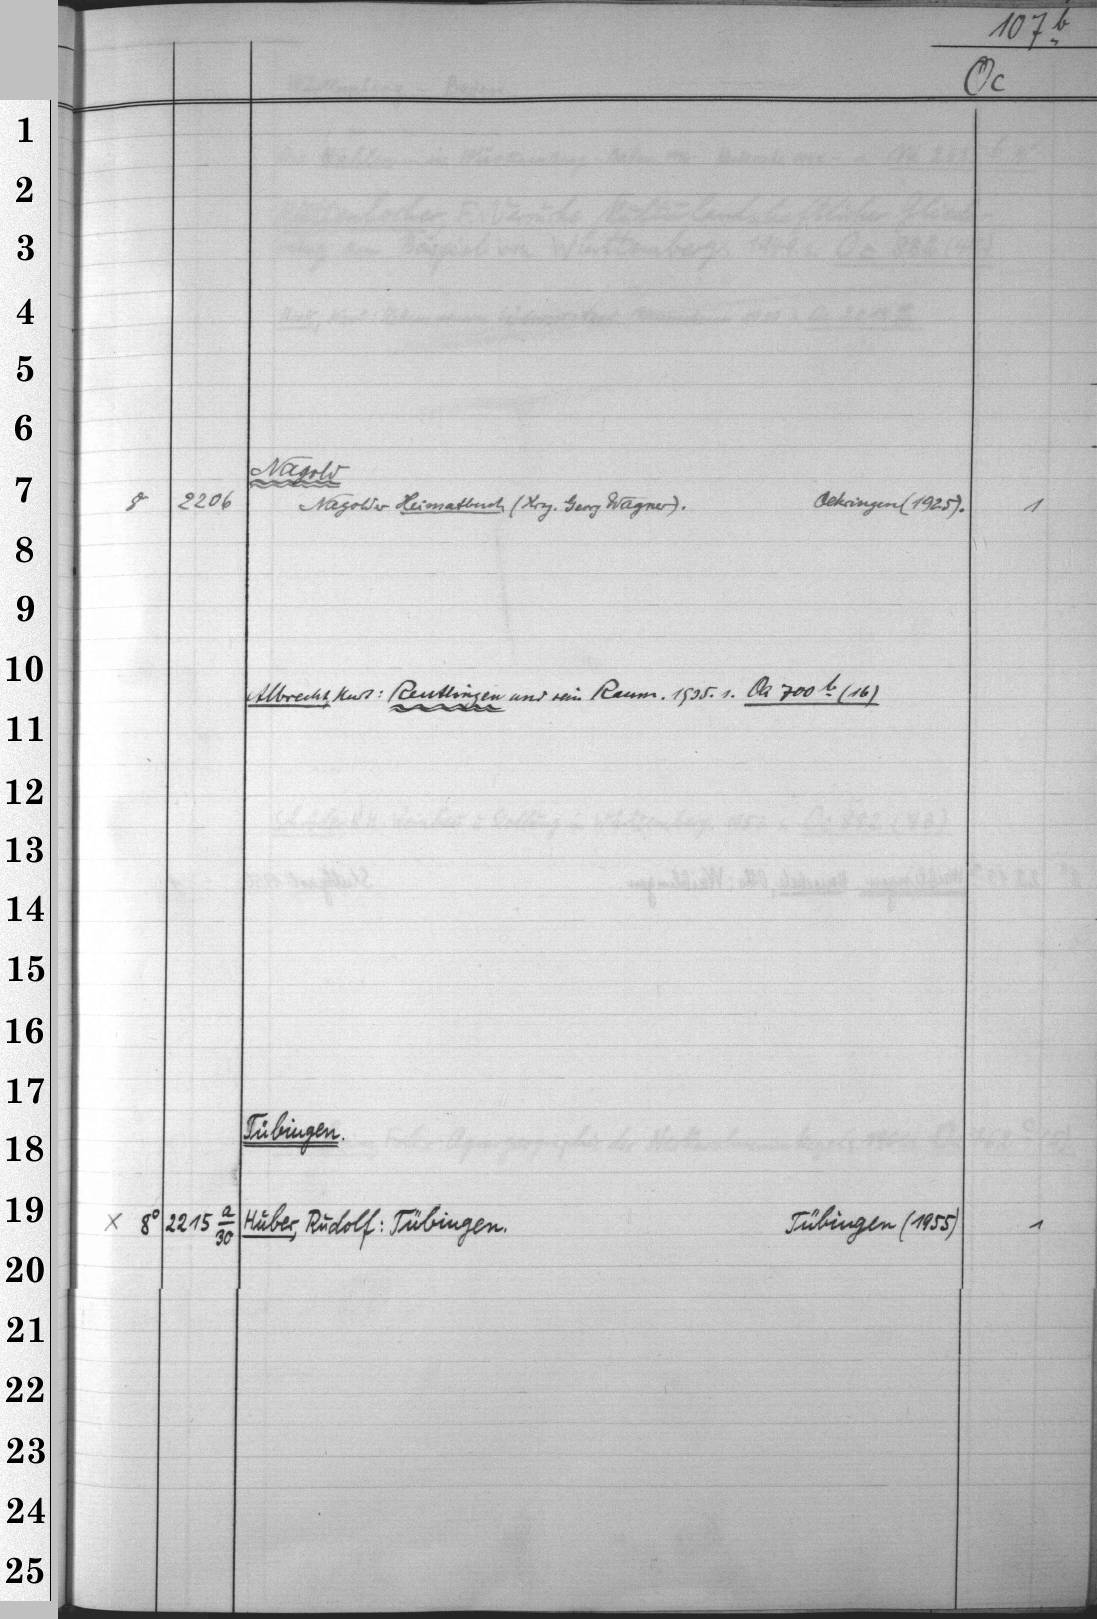 107 b
Oc
1
2
3
4
5
6
Nagold
7
8 2206 Nagolder Heimatbuch (Hrg. Georg Wagner). Oehringen (1925). 1
8
9
10
Albrecht, Kurt: Reutlingen und sein Raum. 1935. s. Oa 700 b (16)
11
12
13
14
15
16
17
Tübingen.
18
19
X 8° 2215 a/30 Huber, Rudolf: Tübingen. Tübingen (1955) 1
20
21
22
23
24
25